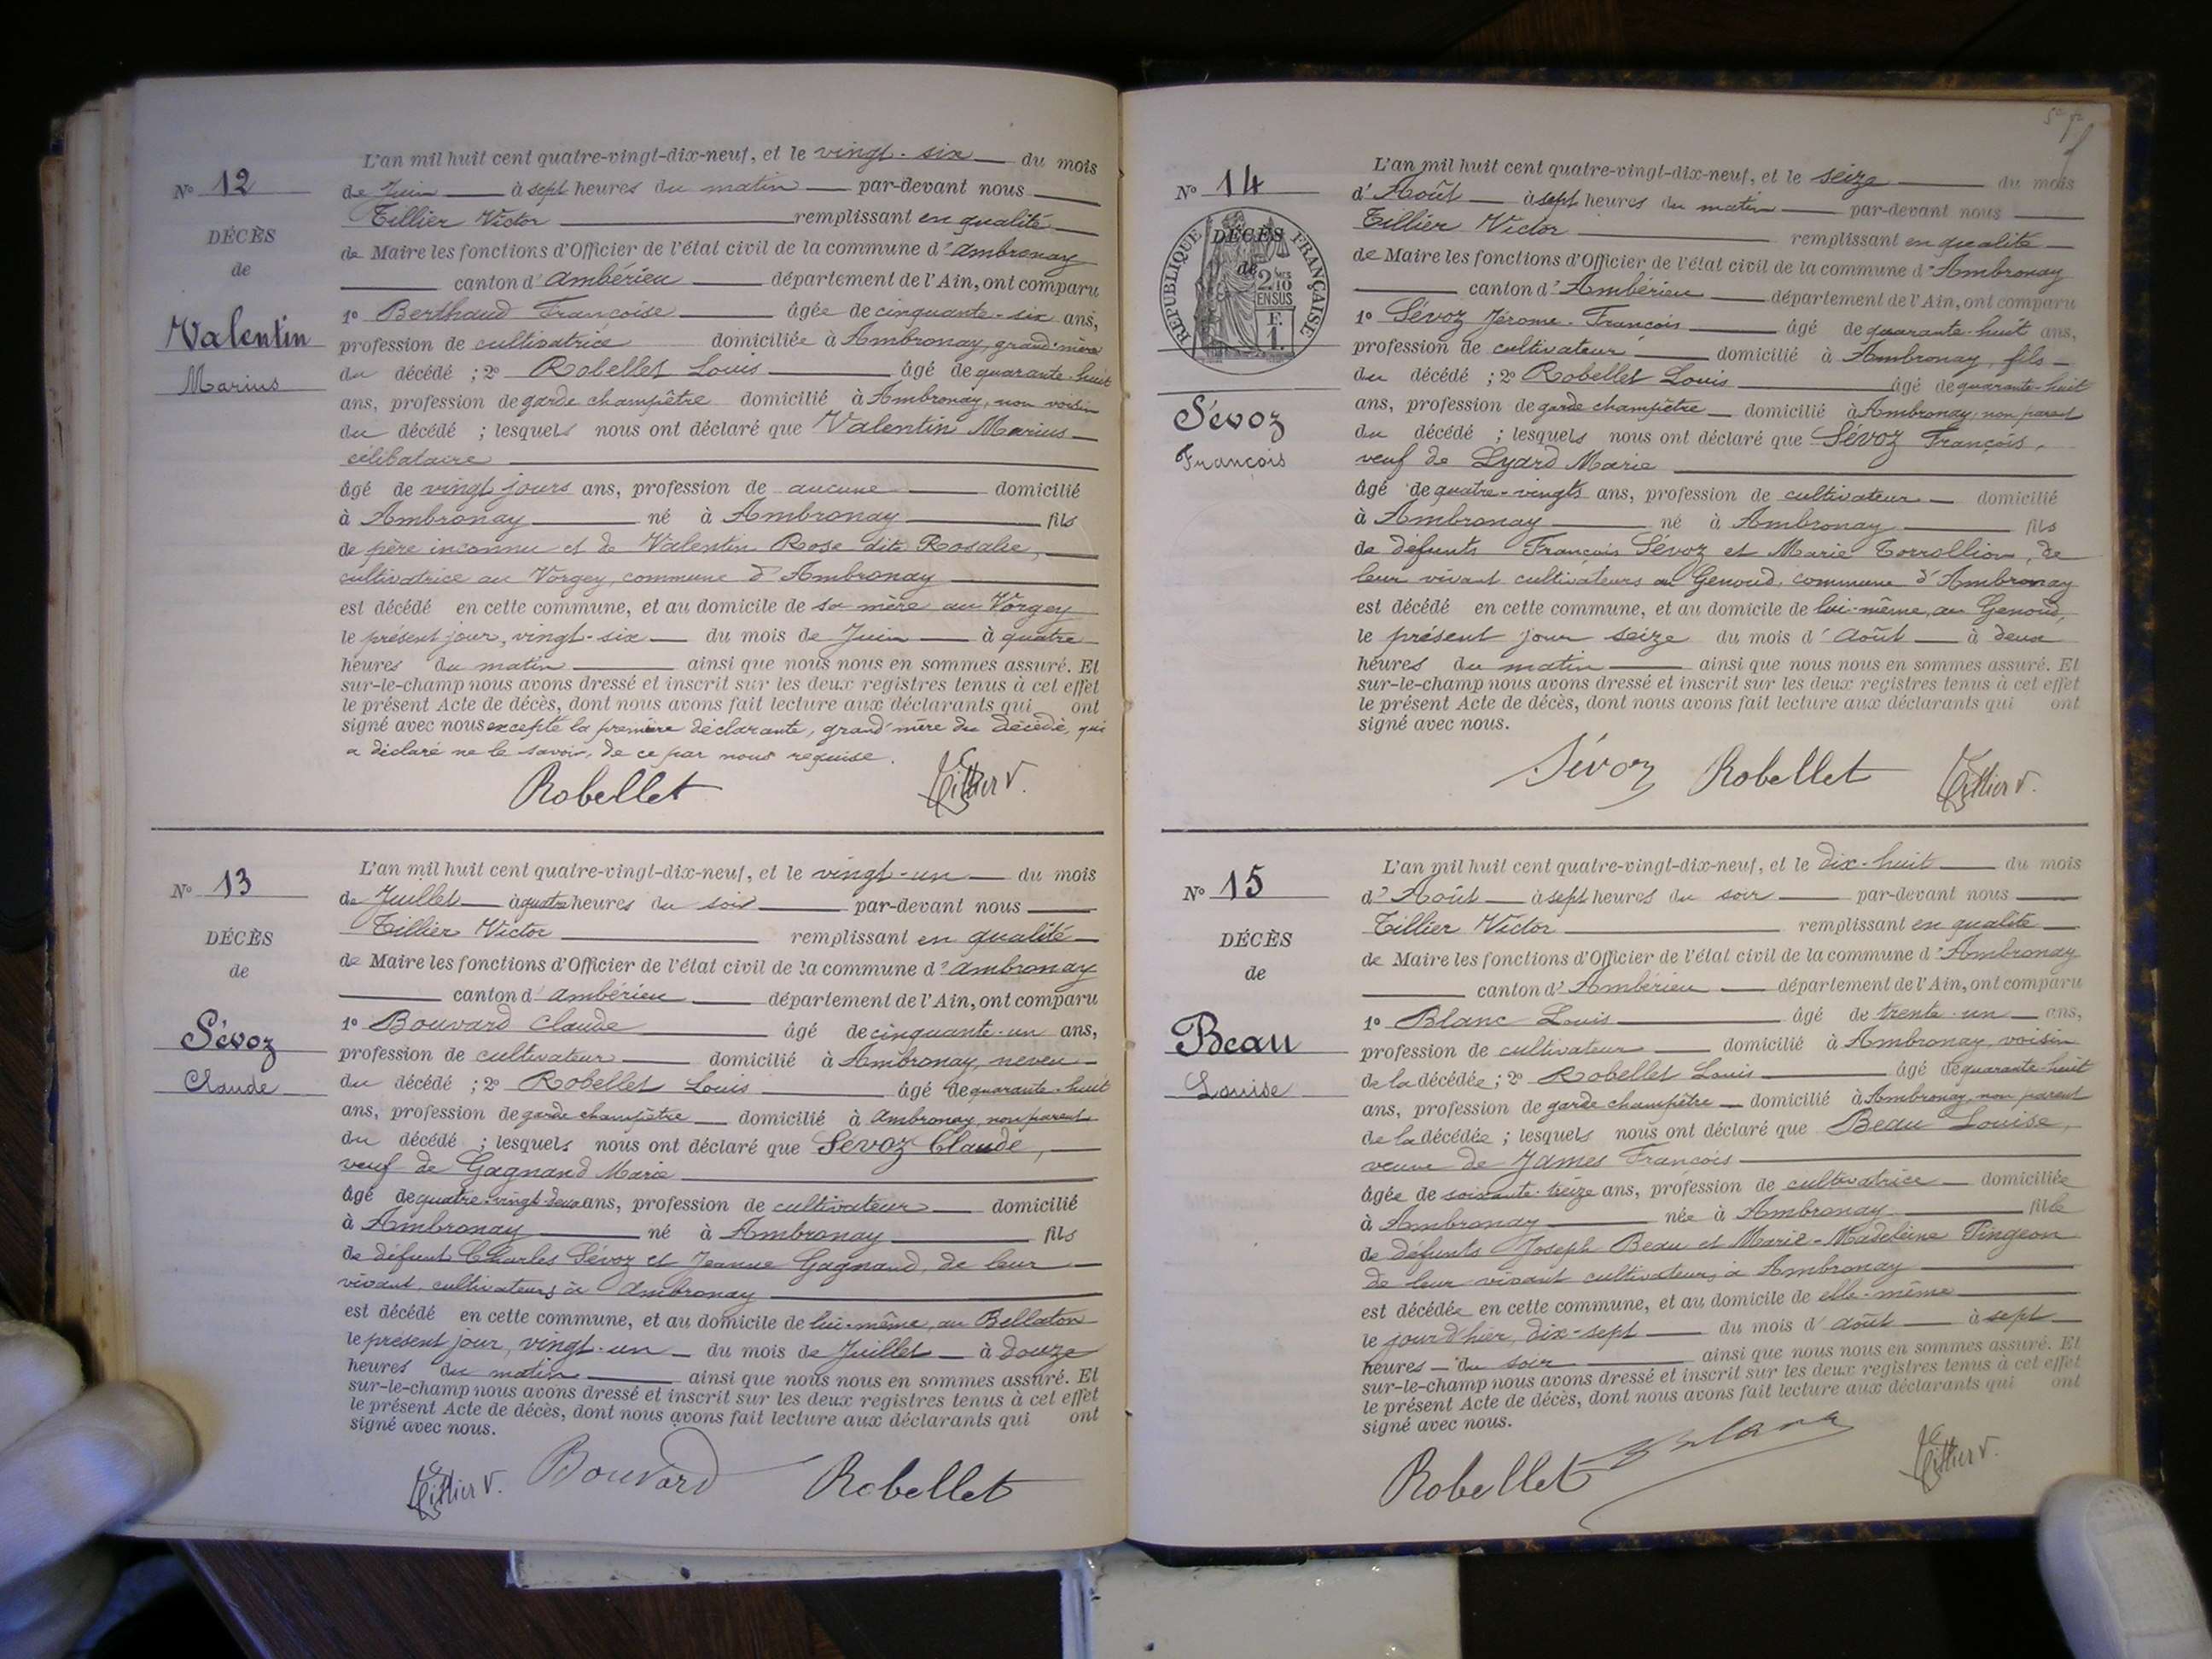 N° 12
DÉCÈS
de
Valentin
Marius
L'an mil huit cent quatre-vingt-dix-neuf, et le vingt-six du mois
de Juin à sept heures du matin par-devant nous
Tillier Victor remplissant en qualité
de Maire les fonctions d'Officier de l'état civil de la commune d'Ambronay
canton d'Ambérieu département de l'Ain, ont comparu
1° Berthaud Françoise âgée de cinquante-six ans,
profession de cultivatrice domiciliée à Ambronay, grand'mère
du décédé ; 2° Robellet Louis âgé de quarante-huit
ans, profession de garde champêtre domicilié à Ambronay, non voisin
du décédé ; lesquels nous ont déclaré que Valentin Marius
célibataire
âgé de vingt jours ans, profession de aucune domicilié
à Ambronay né à Ambronay fils
de père inconnu et de Valentin Rose dite Rosalie,
cultivatrice au Vorgey, commune d'Ambronay
est décédé en cette commune, et au domicile de sa mère au Vorgey
le présent jour, vingt-six du mois de Juin à quatre
heures du matin ainsi que nous nous en sommes assuré. Et
sur-le-champ nous avons dressé et inscrit sur les deux registres tenus à cet effet
le présent Acte de décès, dont nous avons fait lecture aux déclarants qui ont
signé avec nous excepté la première déclarante, grand'mère du décédé, qui
a déclaré ne le savoir, de ce par nous requise.
Robellet Tillier V.
N° 13
DÉCÈS
de
Sévoz
Claude
L'an mil huit cent quatre-vingt-dix-neuf, et le vingt-un du mois
de Juillet à quatre heures du soir par-devant nous
Tillier Victor remplissant en qualité
de Maire les fonctions d'Officier de l'état civil de la commune d'Ambronay
canton d'Ambérieu département de l'Ain, ont comparu
1° Bouvard Claude âgé de cinquante-un ans,
profession de cultivateur domicilié à Ambronay, neveu
du décédé ; 2° Robellet Louis âgé de quarante-huit
ans, profession de garde champêtre domicilié à Ambronay, non parent
du décédé ; lesquels nous ont déclaré que Sévoz Claude,
veuf de Gagnand Marie
âgé de quatre-vingt-deux ans, profession de cultivateur domicilié
à Ambronay né à Ambronay fils
de défunt Charles Sévoz et Jeanne Gagnand, de leur
vivant, cultivateurs à Ambronay
est décédé en cette commune, et au domicile de lui-même, au Bellaton
le présent jour, vingt-un du mois de Juillet à douze
heures du matin ainsi que nous nous en sommes assuré. Et
sur-le-champ nous avons dressé et inscrit sur les deux registres tenus à cet effet
le présent Acte de décès, dont nous avons fait lecture aux déclarants qui ont
signé avec nous.
Tillier V. Bouvard Robellet
N° 14
DÉCÈS
de
RÉPUBLIQUE FRANÇAISE
2/10 EN SUS
F. 1.
Sévoz
François
L'an mil huit cent quatre-vingt-dix-neuf, et le seize du mois
d'Août à sept heures du matin par-devant nous
Tillier Victor remplissant en qualité
de Maire les fonctions d'Officier de l'état civil de la commune d'Ambronay
canton d'Ambérieu département de l'Ain, ont comparu
1° Sévoz Jérome-François âgé de quarante-huit ans,
profession de cultivateur domicilié à Ambronay, fils
du décédé ; 2° Robellet Louis âgé de quarante-huit
ans, profession de garde champêtre domicilié à Ambronay, non parent
du décédé ; lesquels nous ont déclaré que Sévoz François,
veuf de Lyard Marie
âgé de quatre-vingts ans, profession de cultivateur domicilié
à Ambronay né à Ambronay fils
de défunts François Sévoz et Marie Torrollion, de
leur vivant cultivateurs au Genoud, commune d'Ambronay
est décédé en cette commune, et au domicile de lui-même, au Genoud,
le présent jour seize du mois d'août à deux
heures du matin ainsi que nous nous en sommes assuré. Et
sur-le-champ nous avons dressé et inscrit sur les deux registres tenus à cet effet
le présent Acte de décès, dont nous avons fait lecture aux déclarants qui ont
signé avec nous.
Sévoz Robellet Tillier V.
N° 15
DÉCÈS
de
Beau
Louise
L'an mil huit cent quatre-vingt-dix-neuf, et le dix-huit du mois
d'Août à sept heures du soir par-devant nous
Tillier Victor remplissant en qualité
de Maire les fonctions d'Officier de l'état civil de la commune d'Ambronay
canton d'Ambérieu département de l'Ain, ont comparu
1° Blanc Louis âgé de trente-un ans,
profession de cultivateur domicilié à Ambronay, voisin
de la décédée ; 2° Robellet Louis âgé de quarante-huit
ans, profession de garde champêtre domicilié à Ambronay, non parent
de la décédée ; lesquels nous ont déclaré que Beau Louise,
veuve de James François
âgée de soixante-treize ans, profession de cultivatrice domiciliée
à Ambronay née à Ambronay fille
de défunts Joseph Beau et Marie-Madeleine Pingeon
de leur vivant cultivateurs à Ambronay
est décédée en cette commune, et au domicile de elle-même
le jour d'hier, dix-sept du mois d'août à sept
heures du soir ainsi que nous nous en sommes assuré. Et
sur-le-champ nous avons dressé et inscrit sur les deux registres tenus à cet effet
le présent Acte de décès, dont nous avons fait lecture aux déclarants qui ont
signé avec nous.
Robellet Blanc Tillier V.